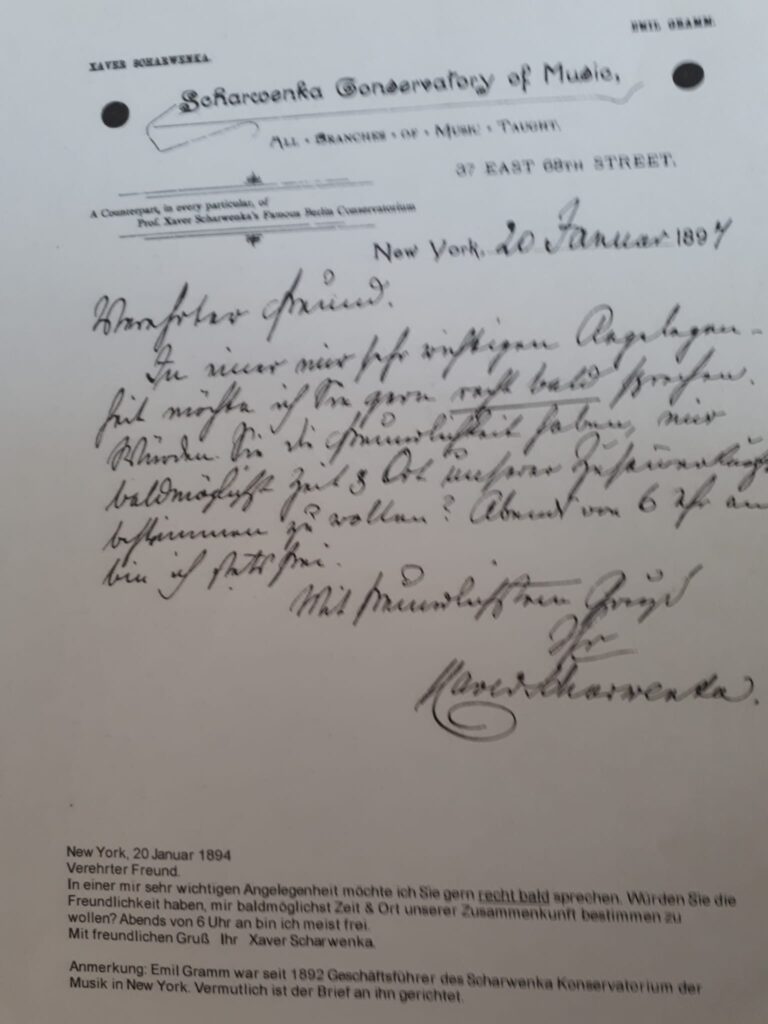 EMIL GRAMM.
XAVER SCHARWENKA.
Scharwenka Conservatory of Music,
ALL • BRANCHES • OF • MUSIC • TAUGHT.
37 EAST 68TH STREET.
A Counterpart, in every particular, of
Prof. Xaver Scharwenka's Famous Berlin Conservatorium
New York, 20 Januar 1894
Verehrter Freund.
In einer mir sehr wichtigen Angelegen-
heit möchte ich Sie gern recht bald sprechen.
Würden Sie die Freundlichkeit haben, mir
baldmöglichst Zeit & Ort unserer Zusammenkunft
bestimmen zu wollen? Abends von 6 Uhr an
bin ich stets frei.
Mit freundlichstem Gruß
Ihr
Xaver Scharwenka.
New York, 20 Januar 1894
Verehrter Freund.
In einer mir sehr wichtigen Angelegenheit möchte ich Sie gern recht bald sprechen. Würden Sie die
Freundlichkeit haben, mir baldmöglichst Zeit & Ort unserer Zusammenkunft bestimmen zu
wollen? Abends von 6 Uhr an bin ich meist frei.
Mit freundlichen Gruß Ihr Xaver Scharwenka.
Anmerkung: Emil Gramm war seit 1892 Geschäftsführer des Scharwenka Konservatorium der
Musik in New York. Vermutlich ist der Brief an ihn gerichtet.